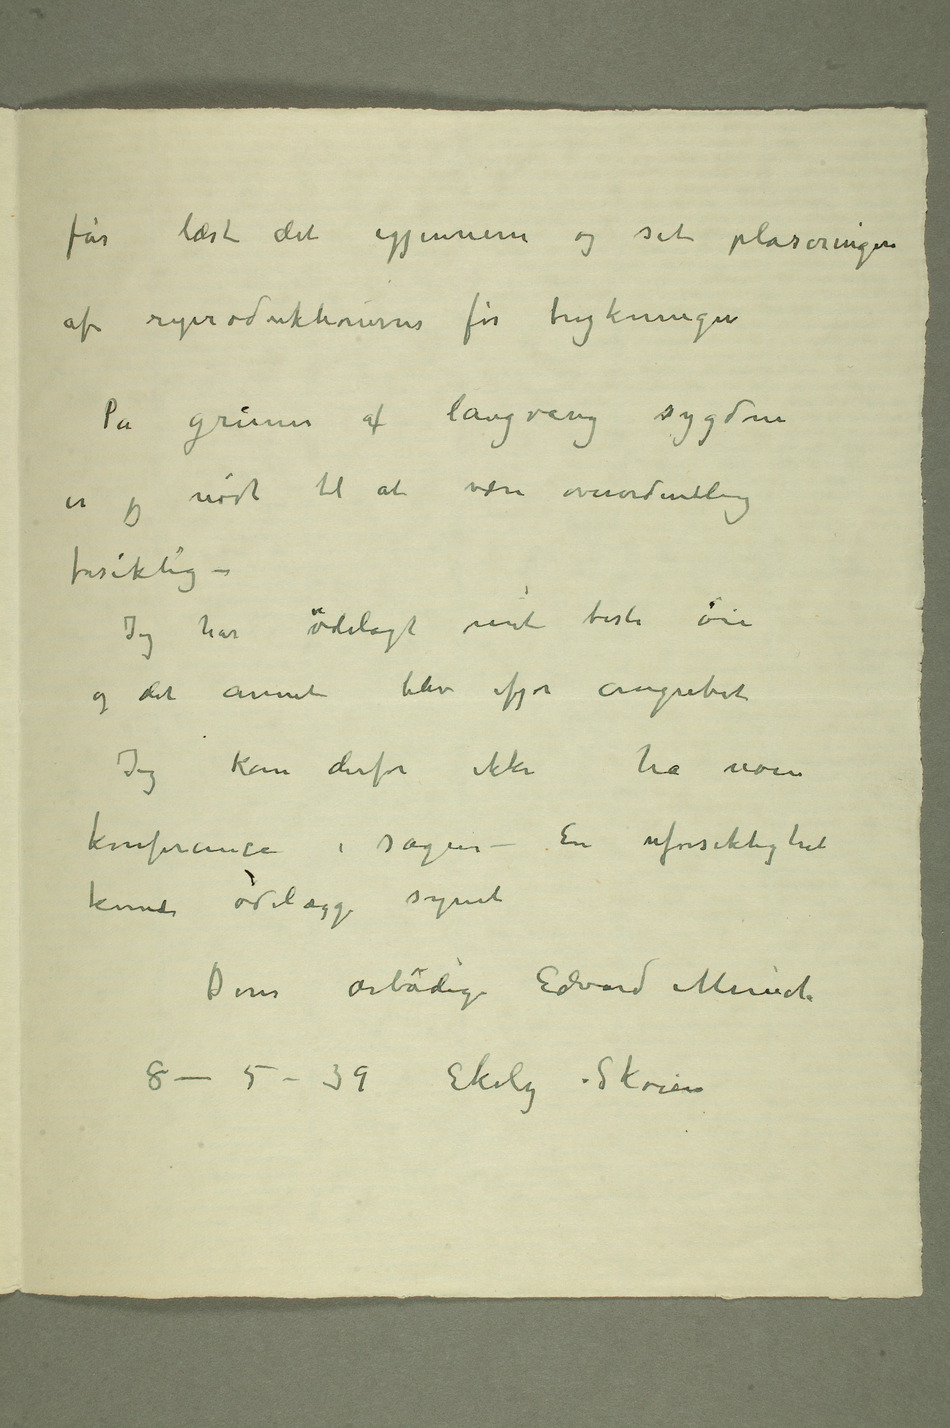 får læst det igjennem og set plaseringen
af reproduktionerne før trykningen
På grunn af langvarig sygdom
er jeg nødt til at være overordentlig
forsiktig –
Jeg har ödelagt mit beste öie
og det annet blev ifjor angrebet
Jeg kan derfor ikke ha noen
konferance i sagen – En uforsiktighet
kunde ödelægge synet
Deres ærbödige Edvard Munch
8 – 5 – 39 Ekely Skøien